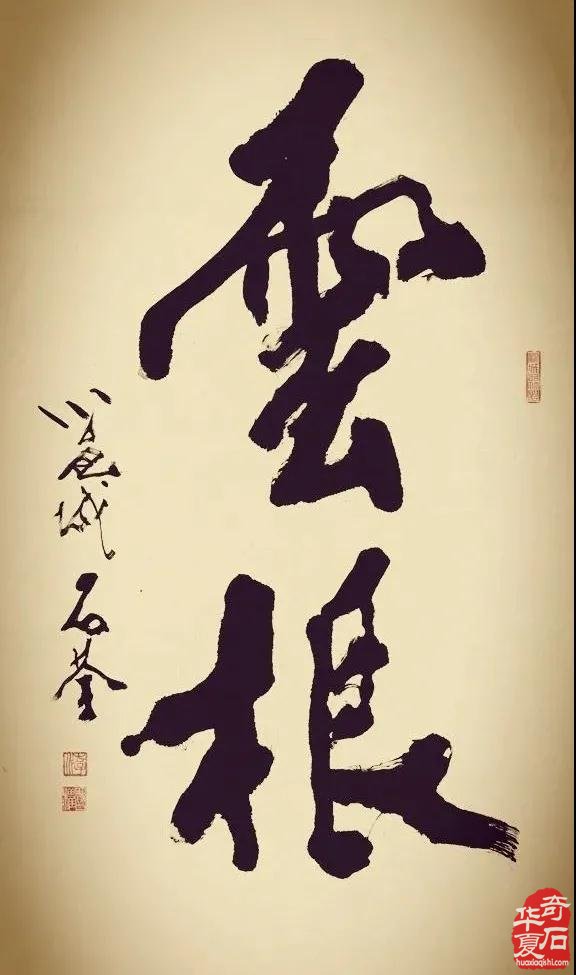 雲根
城 石荃
华夏
奇石
huaxiaqishi.com